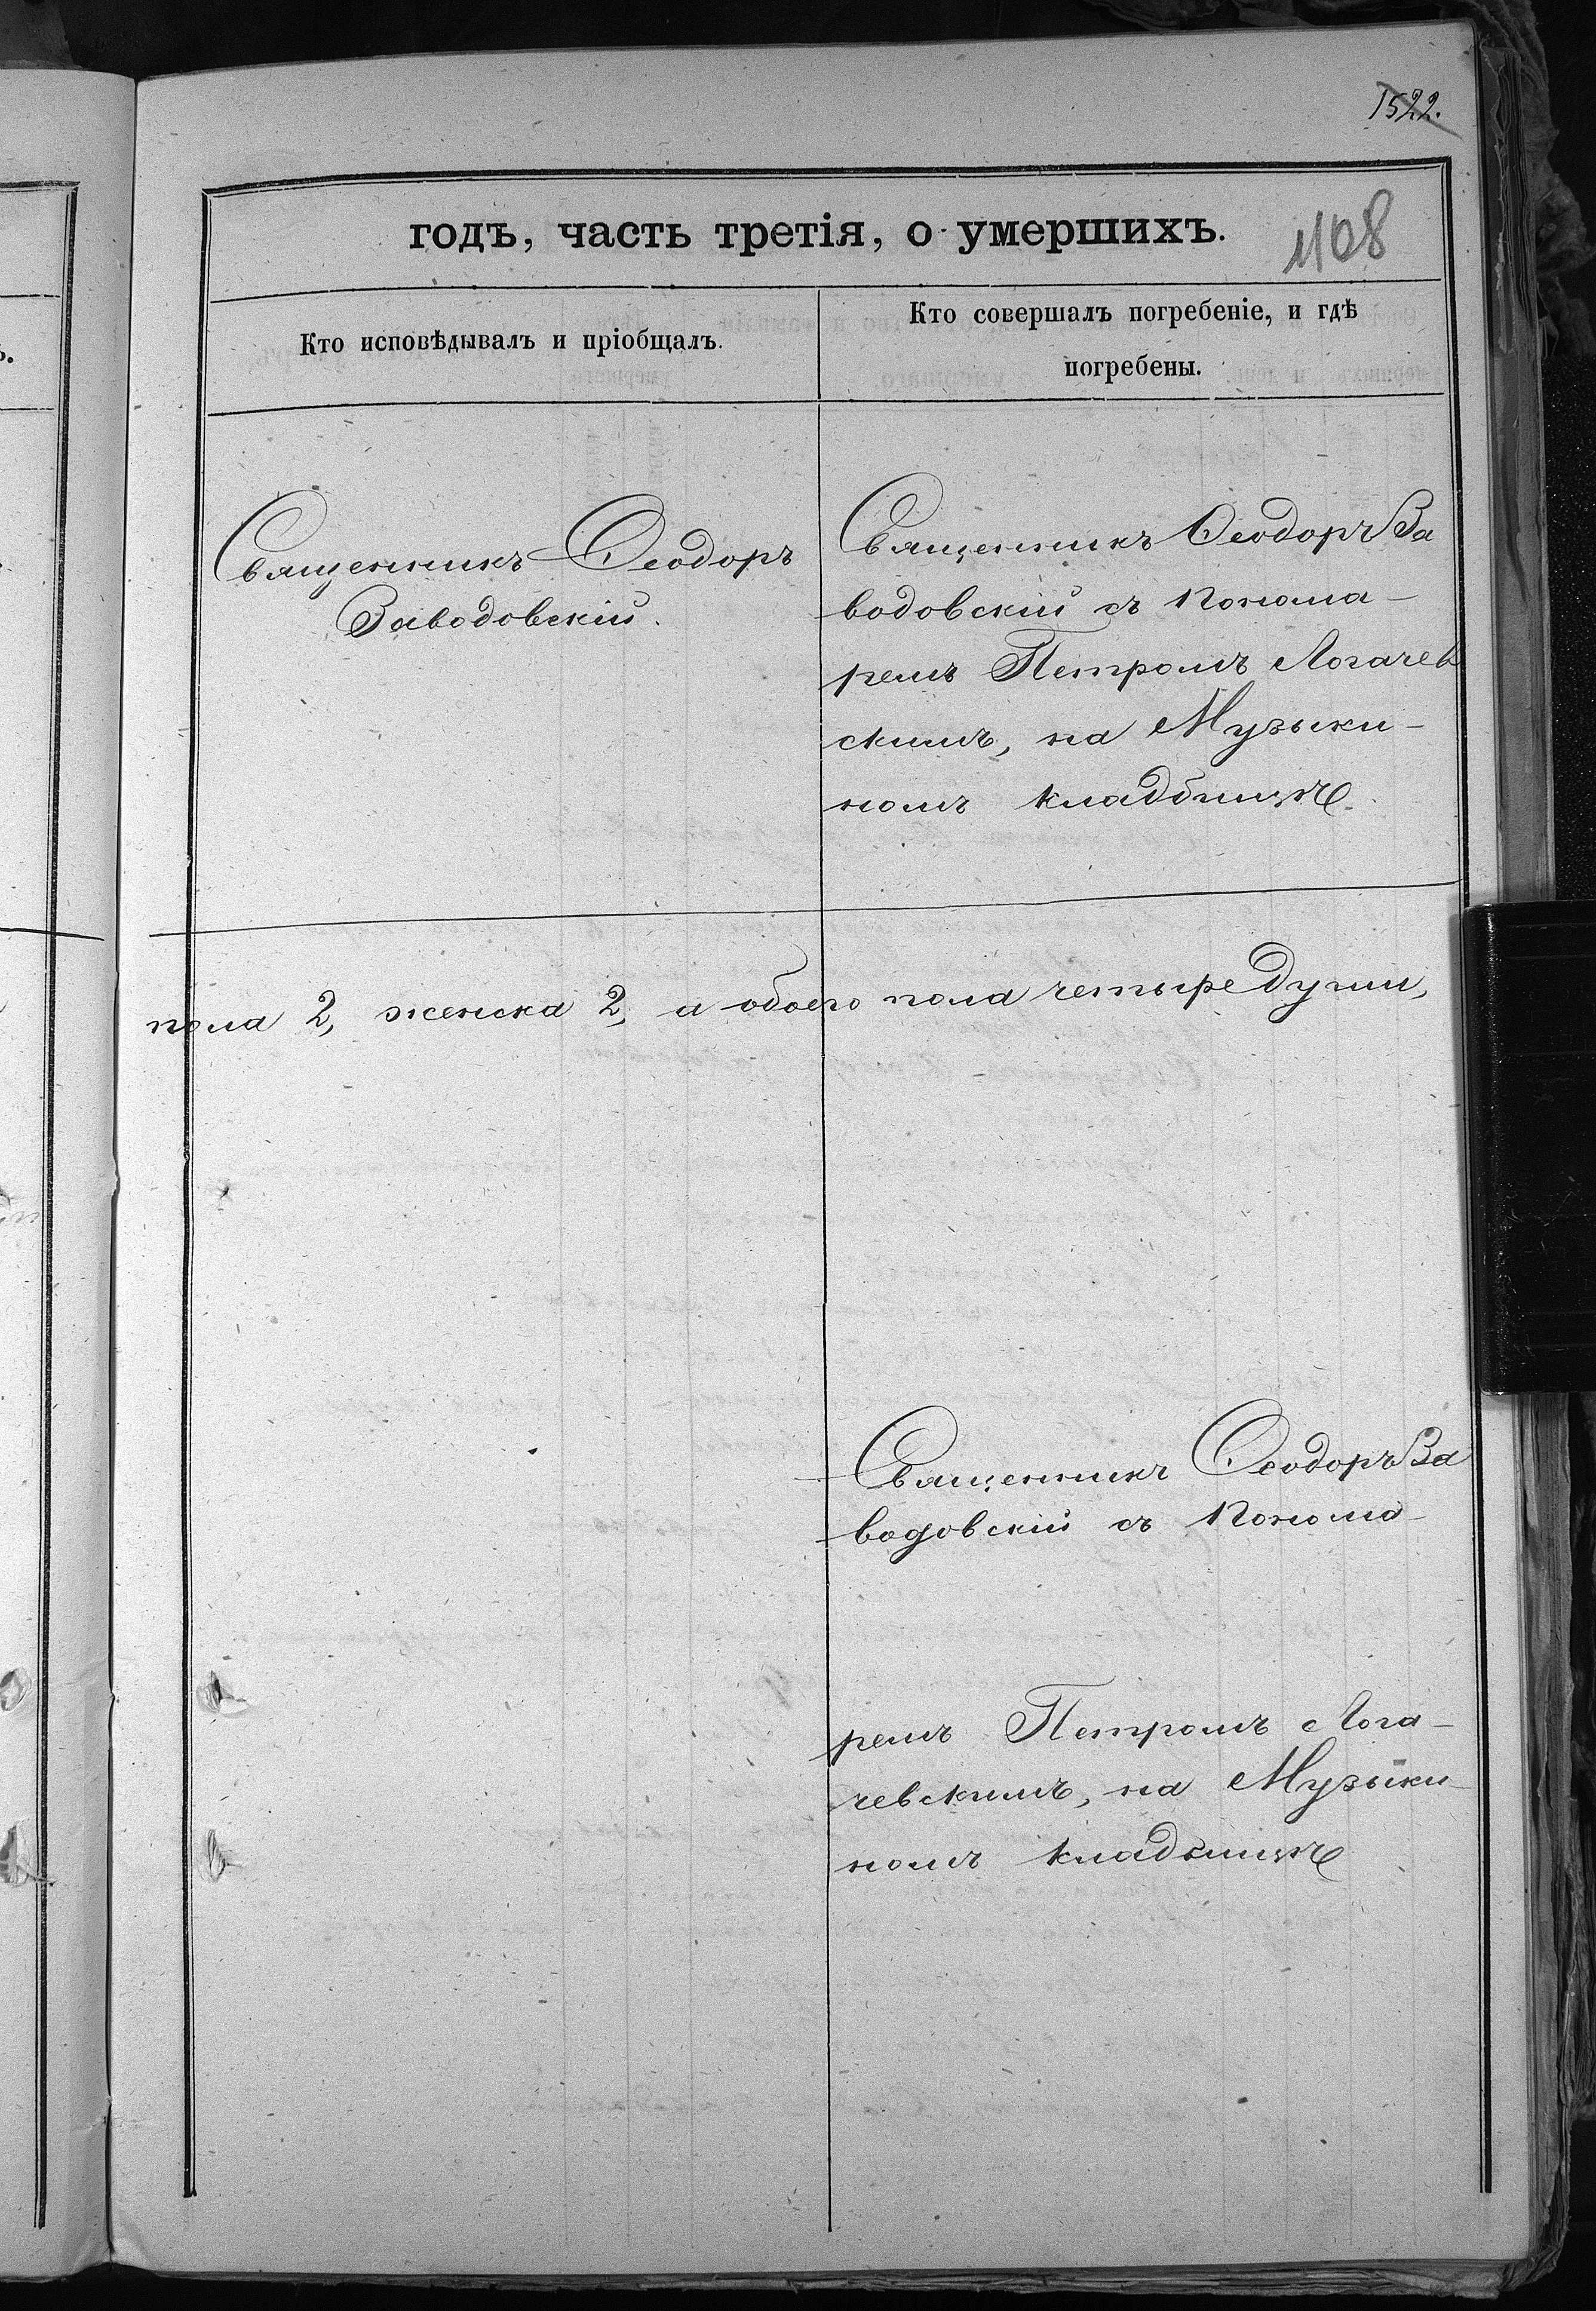 1522.
годъ, часть третія, о умершихъ.
1108
Кто исповѣдывалъ и пріобщалъ.
Кто совершалъ погребеніе, и гдѣ
погребены.
Священникъ Ѳеодоръ
Заводовскій.
Священникъ Ѳеодоръ За
водовскій съ Понома-
ремъ Петромъ Логачев
скимъ, на Музыки-
номъ кладбищѣ.
пола 2, женска 2, и обоего пола четыре души,
Священникъ Ѳеодоръ За
водовскій съ Понома-
ремъ Петромъ Лога-
чевскимъ, на Музыки-
номъ кладбищѣ